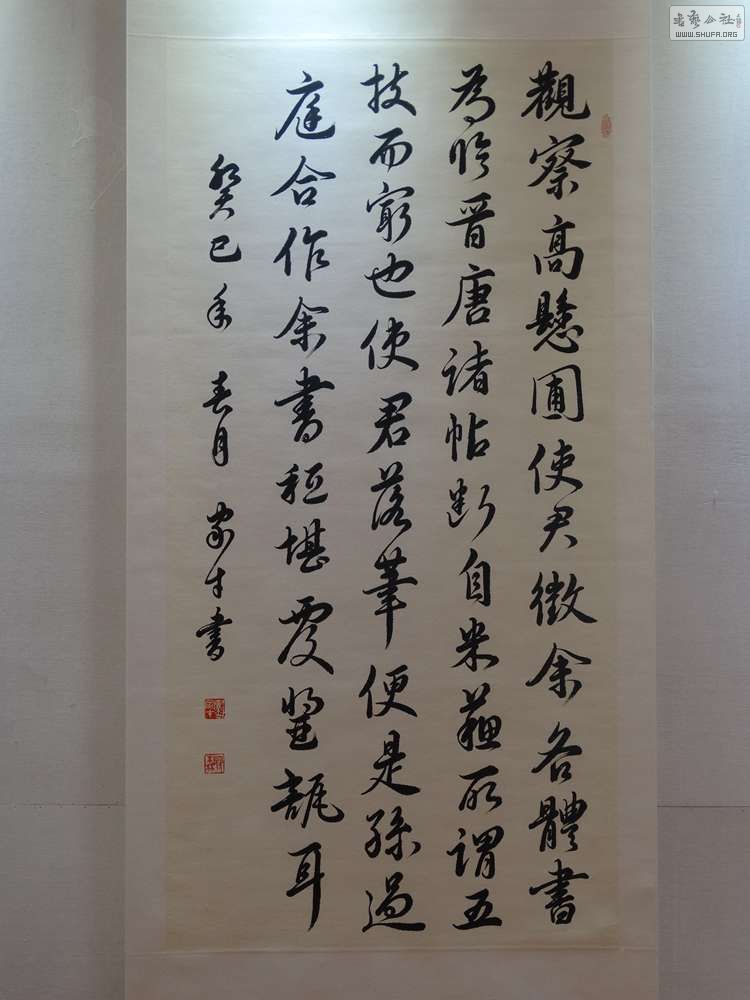 觀察高懸圃使君徵余各體書
為臨晉唐諸帖斷自米蘇所謂五
技而窮也使君落筆便是孫過
庭合作余書秖堪覆醬瓿耳
癸巳年 春月 家才書
書藝公社
WWW.SHUFA.ORG